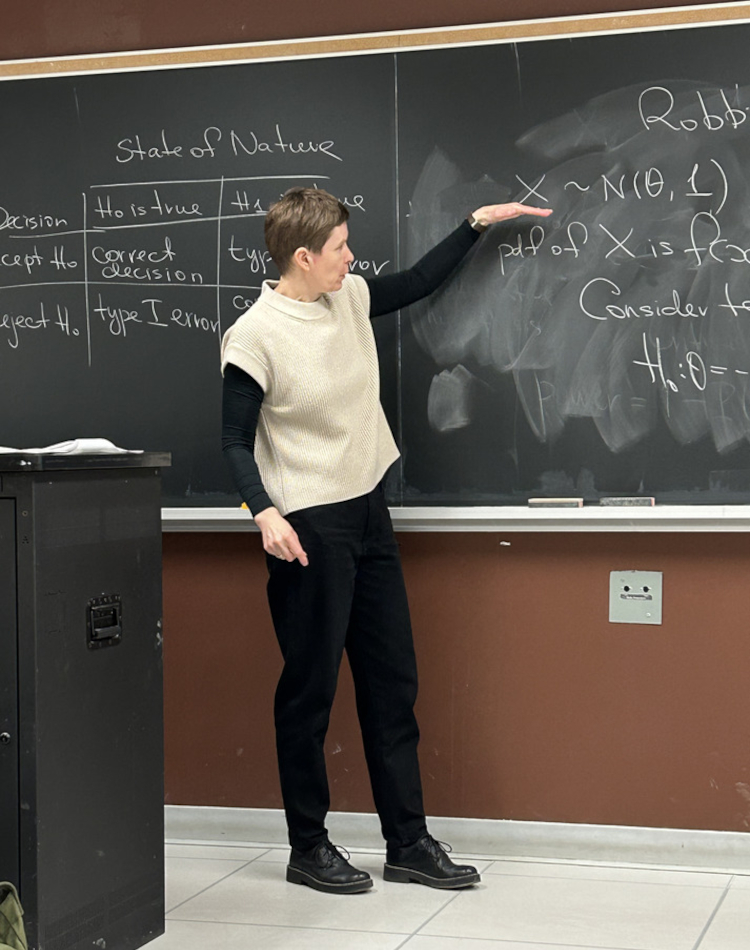 State of Nature
Decision H₀ is true H₁ is true
Accept H₀ correct decision type error
Reject H₀ type I error co
Robb
X ~ N(θ, 1)
pdf of X is f(x
Consider te
H₀: θ = -